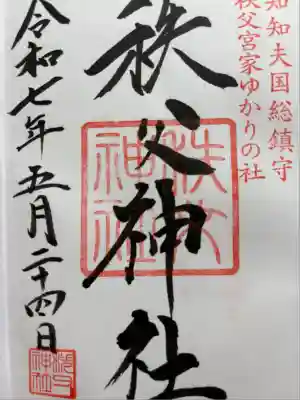 知知夫国総鎮守
秩父宮家ゆかりの社
秩父神社
秩父神社
令和七年五月二十四日